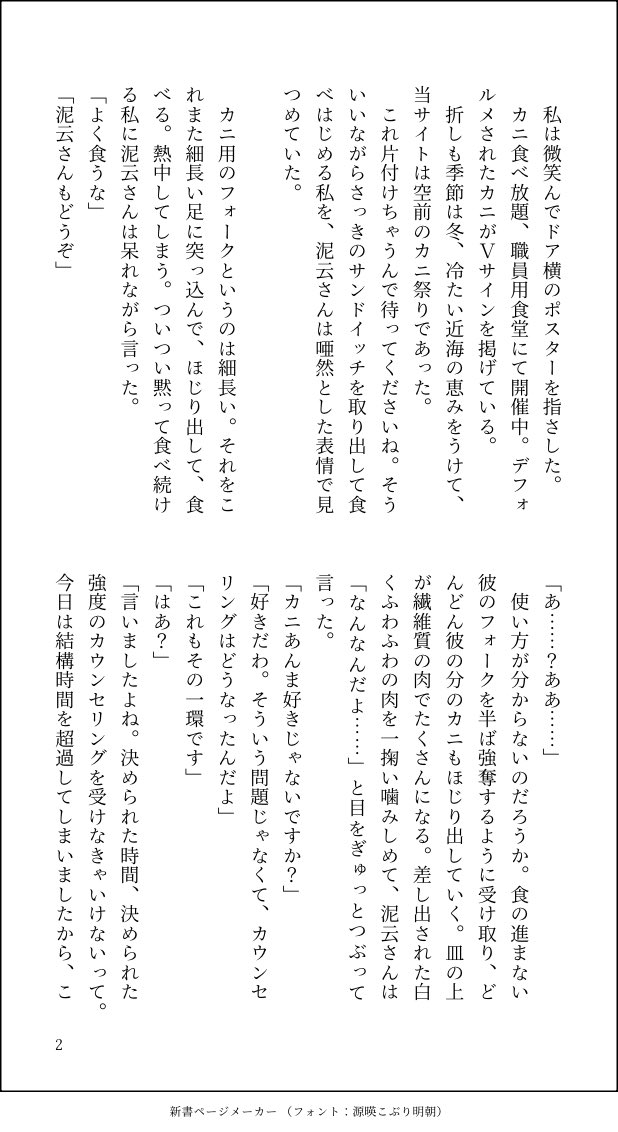 私は微笑んでドア横のポスターを指さした。
　カニ食べ放題、職員用食堂にて開催中。デフォ
ルメされたカニがＶサインを掲げている。
　折しも季節は冬、冷たい近海の恵みをうけて、
当サイトは空前のカニ祭りであった。
　これ片付けちゃうんで待ってくださいね。そう
いいながらさっきのサンドイッチを取り出して食
べはじめる私を、泥云さんは唖然とした表情で見
つめていた。
　カニ用のフォークというのは細長い。それをこ
れまた細長い足に突っ込んで、ほじり出して、食
べる。熱中してしまう。ついつい黙って食べ続け
る私に泥云さんは呆れながら言った。
「よく食うな」
「泥云さんもどうぞ」
「あ……？ああ……」
　使い方が分からないのだろうか。食の進まない
彼のフォークを半ば強奪するように受け取り、ど
んどん彼の分のカニもほじり出していく。皿の上
が繊維質の肉でたくさんになる。差し出された白
くふわふわの肉を一掬い噛みしめて、泥云さんは
「なんなんだよ……」と目をぎゅっとつぶって
言った。
「カニあんま好きじゃないですか？」
「好きだわ。そういう問題じゃなくて、カウンセ
リングはどうなったんだよ」
「これもその一環です」
「はあ？」
「言いましたよね。決められた時間、決められた
強度のカウンセリングを受けなきゃいけないって。
今日は結構時間を超過してしまいましたから、こ
2
新書ページメーカー（フォント：源暎こぶり明朝）